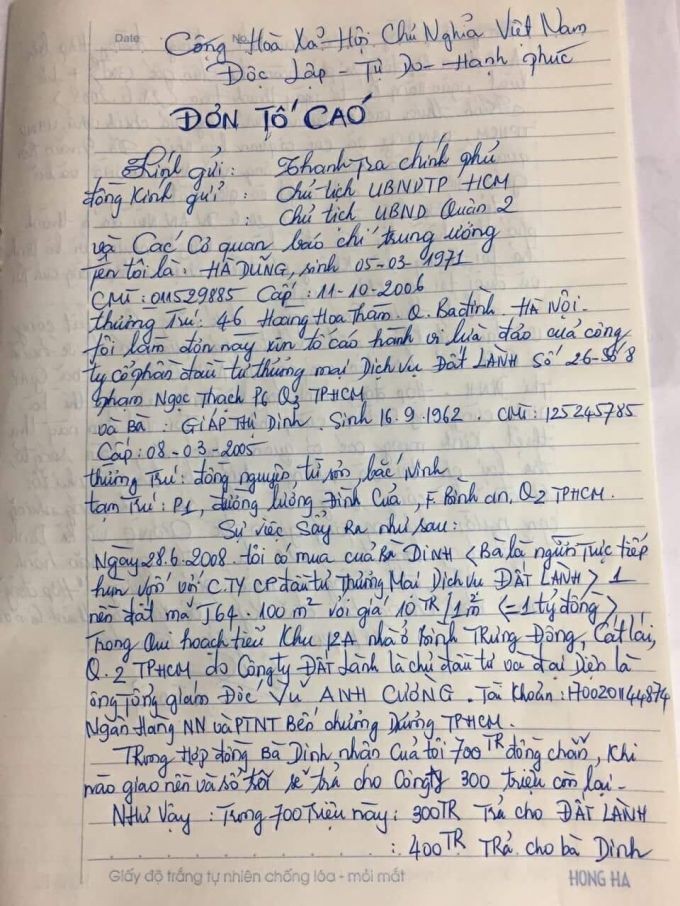 Date No.
Cộng Hoà Xã Hội Chủ Nghĩa Việt Nam
Độc Lập - Tự Do - Hạnh phúc
ĐƠN TỐ CÁO
Kính gửi : Thanh Tra chính phủ
đồng Kính gửi : Chủ tịch UBNDTP HCM
: Chủ tịch UBND Quận 2
và Các Cơ quan báo chí trung ương
Tên tôi là : HÀ DŨNG, sinh 05-03-1971
CMT : 011529885 Cấp : 11-10-2006
thường Trú : 46 Hoàng Hoa Thám. Q. Ba đình. HÀ NỘI.
tôi làm đơn này xin tố cáo hành vi lừa đảo của công
ty cổ phần đầu tư thương mại Dịch Vụ Đất LÀNH Số 26-36 8
phạm Ngọc Thạch P6 Q3 TPHCM
và Bà : GIÁP THỊ Dinh, Sinh 16.9.1962. CMT : 125245785
Cấp : 08-03-2005
thường Trú : đồng nguyên, từ sơn, bắc Ninh
tạm Trú : P1, đường lương Đình Của, F. Bình an, Q2 TPHCM.
Sự việc Sảy Ra như sau :
Ngày 28.6.2008. tôi có mua của BÀ DINH < Bà là người Trực tiếp
hùn vốn với CTY CP đầu tư Thương Mại Dịch vụ ĐẤT LÀNH > 1
nền đất mã J64. 100 m² với giá 10 TR/1m² (=1 tỷ đồng)
Trong Qui hoạch tiểu Khu 12A nhà ở Bình Trưng Đông, Cát lái,
Q.2 TPHCM do Công ty ĐẤT lành là chủ đầu tư và đại Diện là
ông Tổng giám Đốc VŨ ANH CƯỜNG. Tài Khoản : 1700201144874
Ngân Hàng NN và PTNT Bến chương Dương TPHCM.
Trong Hợp đồng Bà Dinh nhận của tôi 700 TR đồng chẵn, Khi
nào giao nền và sổ tôi sẽ trả cho Công ty 300 triệu còn lại -
NHƯ Vậy : Trong 700 Triệu này : 300 TR Trả cho ĐẤT LÀNH
: 400 TR TRẢ cho bà Dinh
Giấy độ trắng tự nhiên chống lóa - mỏi mắt HONG HA